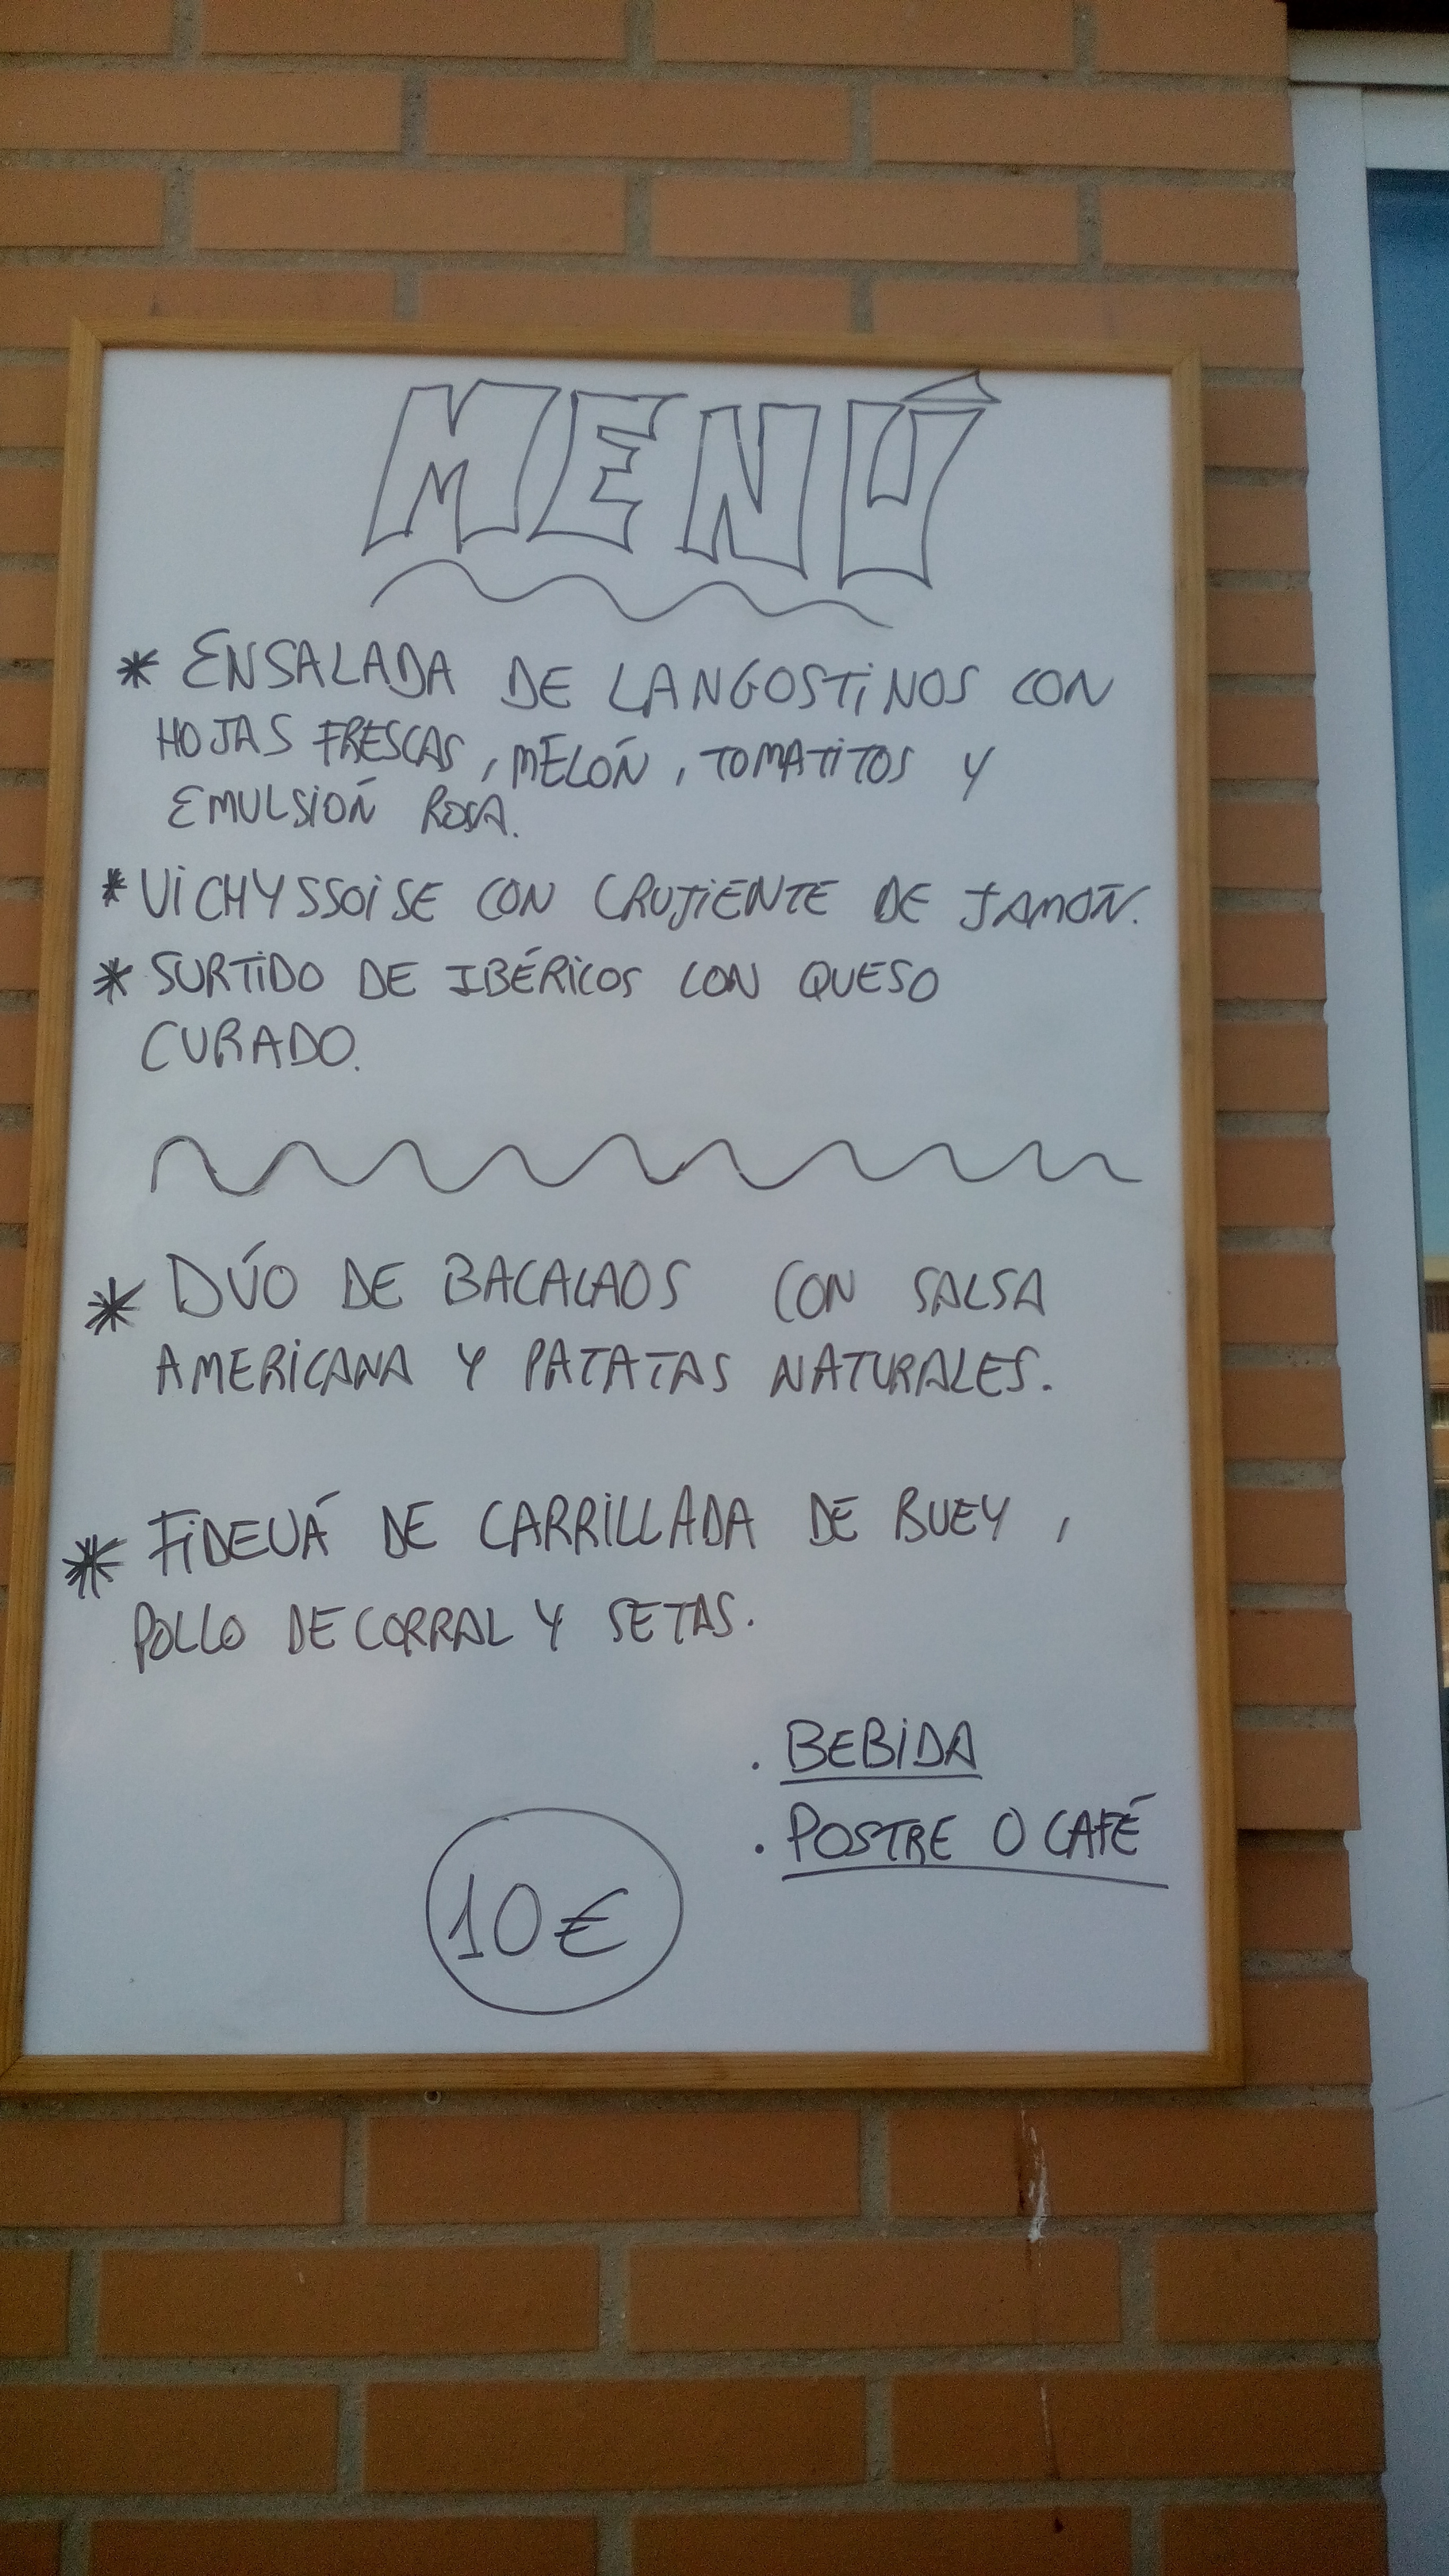 MENÚ
* ENSALADA DE LANGOSTINOS CON
HOJAS FRESCAS, MELÓN, TOMATITOS Y
EMULSIÓN ROSA.
* VICHYSSOISE CON CRUJIENTE DE JAMÓN.
* SURTIDO DE IBÉRICOS CON QUESO
CURADO.
* DÚO DE BACALAOS CON SALSA
AMERICANA Y PATATAS NATURALES.
* FIDEUÁ DE CARRILLADA DE BUEY,
POLLO DE CORRAL Y SETAS.
. BEBIDA
. POSTRE O CAFÉ
10€